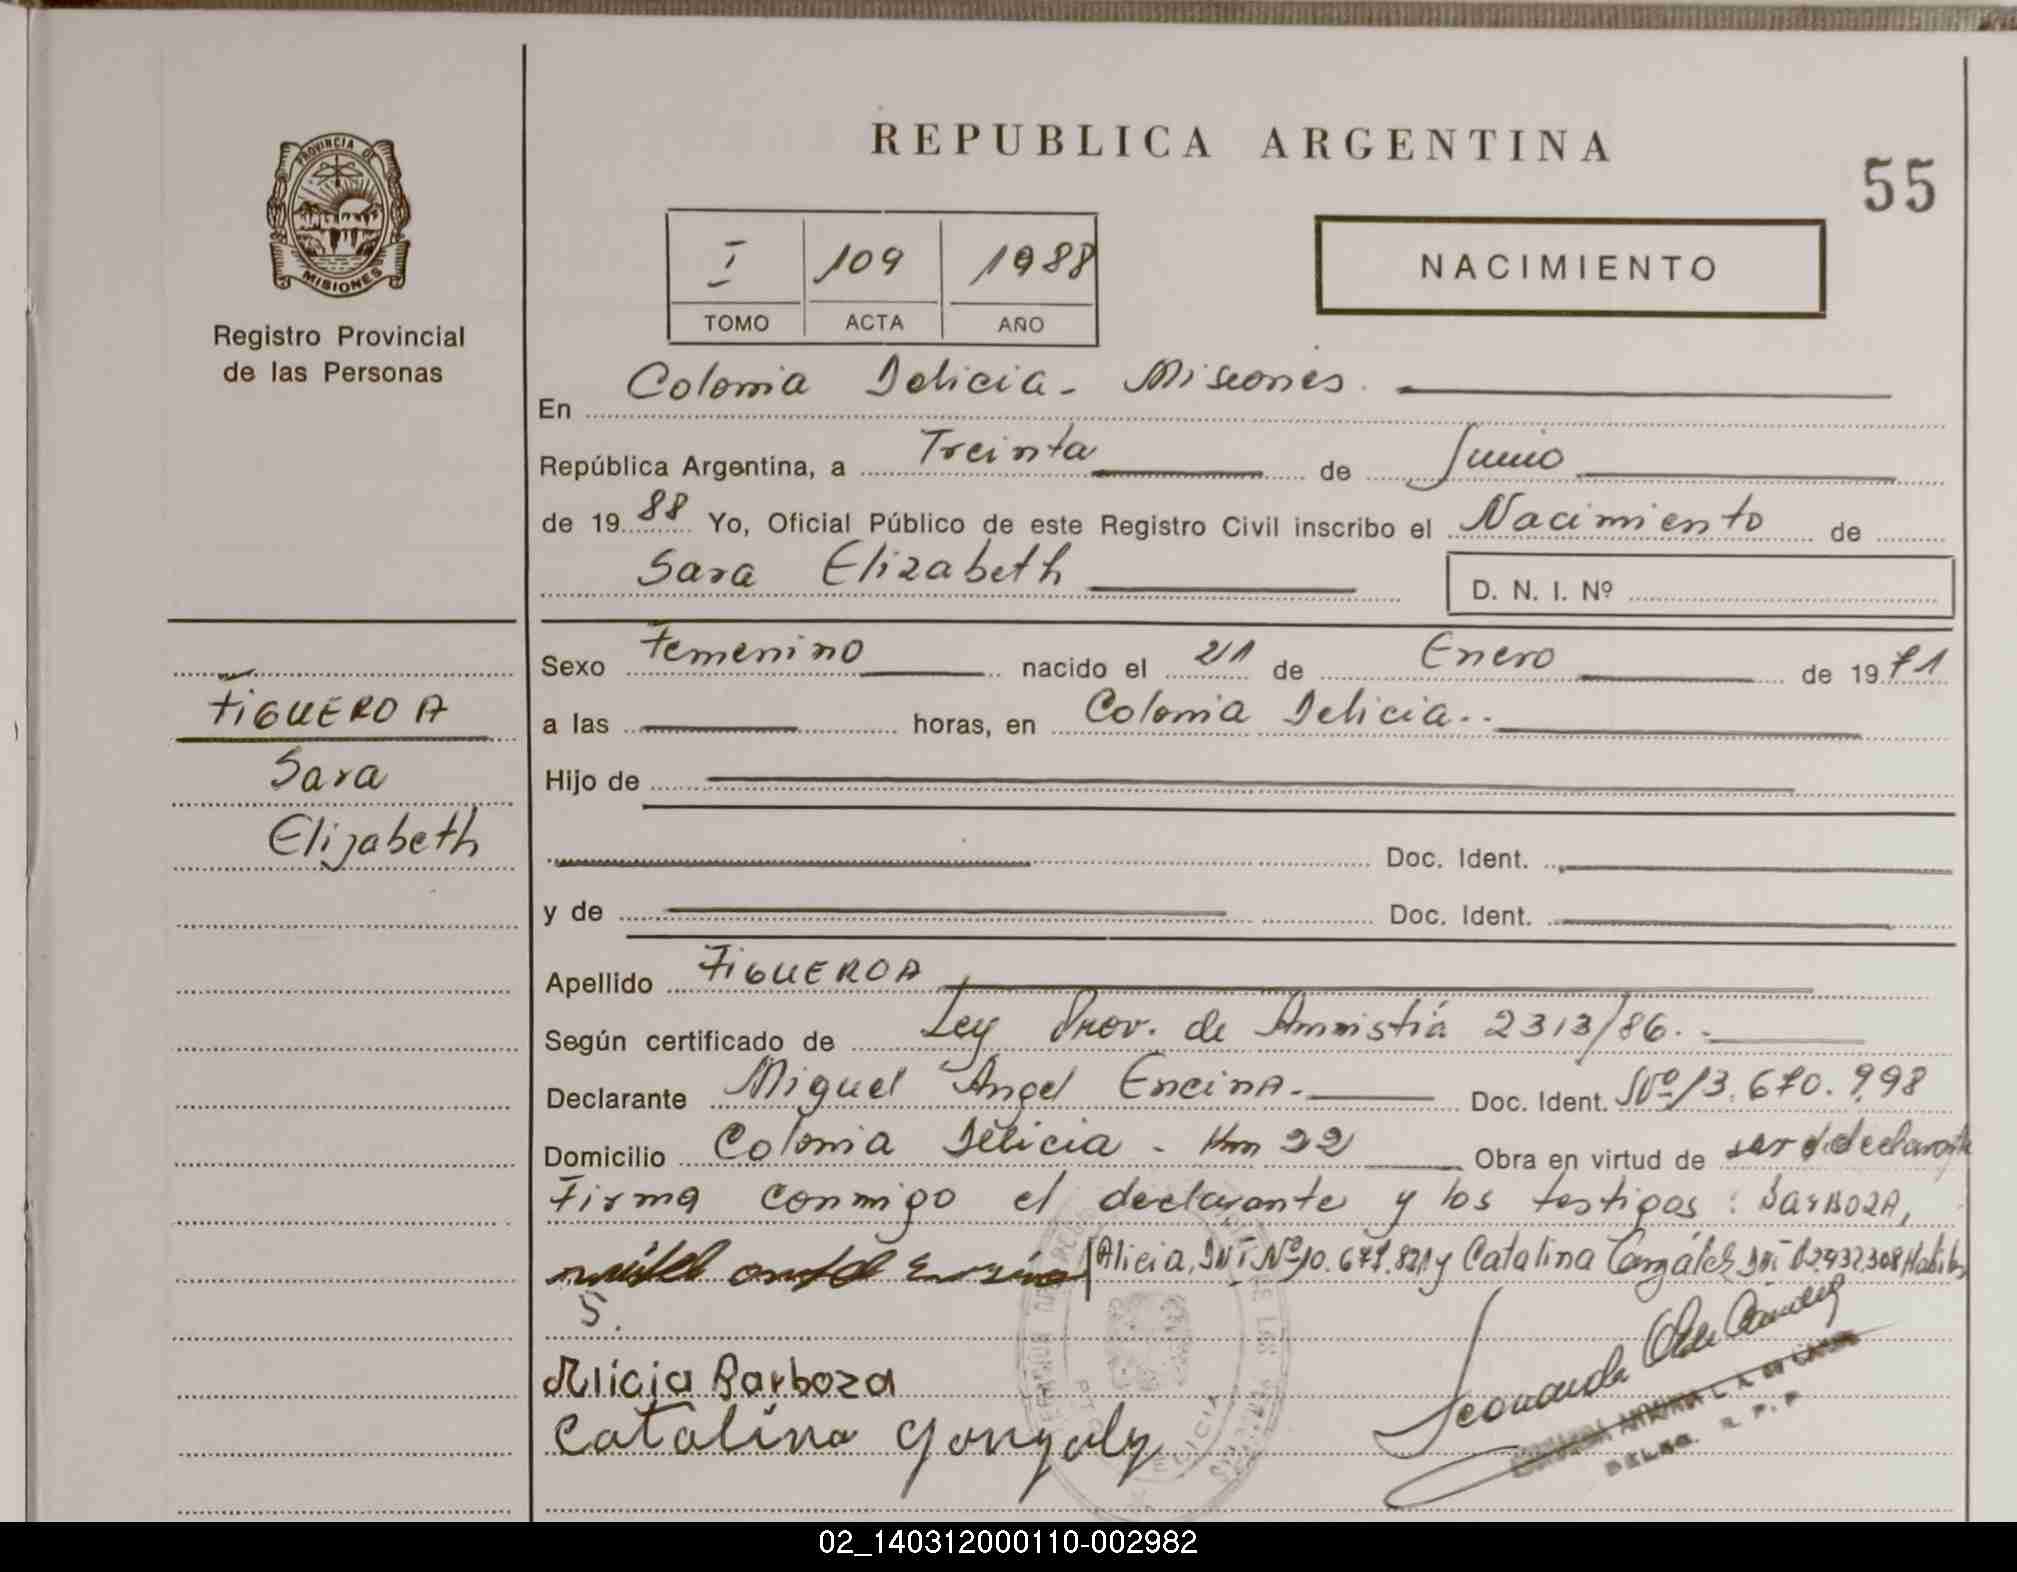 REPUBLICA ARGENTINA
55
PROVINCIA DE
MISIONES
Registro Provincial
de las Personas
I 109 1988
TOMO ACTA AÑO
NACIMIENTO
En Colonia Delicia - Misiones.
República Argentina, a Treinta de Junio
de 19 88 Yo, Oficial Público de este Registro Civil inscribo el Nacimiento de
Sara Elizabeth D. N. I. Nº
Sexo Femenino nacido el 21 de Enero de 19 71
FIGUEROA
a las horas, en Colonia Delicia..
Sara
Hijo de
Elizabeth
Doc. Ident.
y de Doc. Ident.
Apellido FIGUEROA
Según certificado de Ley Prov. de Amnistiá 2313/86..
Declarante Miguel Angel Encina. Doc. Ident. Nº 13.670.998
Domicilio Colonia Delicia - Km 22 Obra en virtud de ser declarante
Firma conmigo el declarante y los testigos: BARBOZA,
Alicia, DNI Nº 10.677.821 y Catalina González DNI
S.
Alicia Barboza
Catalina Gonzalez
DELEG. R. P. P
02_140312000110-002982